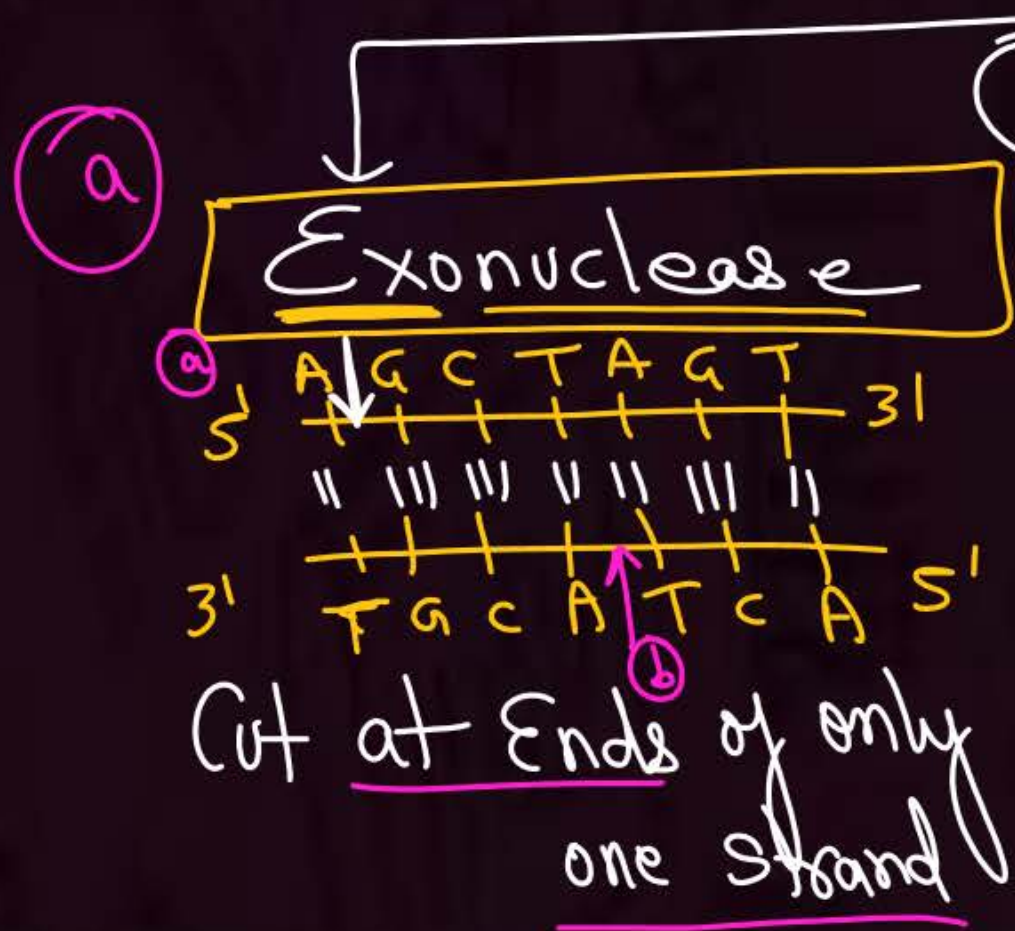 a
Exonuclease
a
A G C T A G T
5' 3'
|| ||| ||| || || ||| ||
3' T G C A T C A 5'
b
Cut at Ends of only
one strand